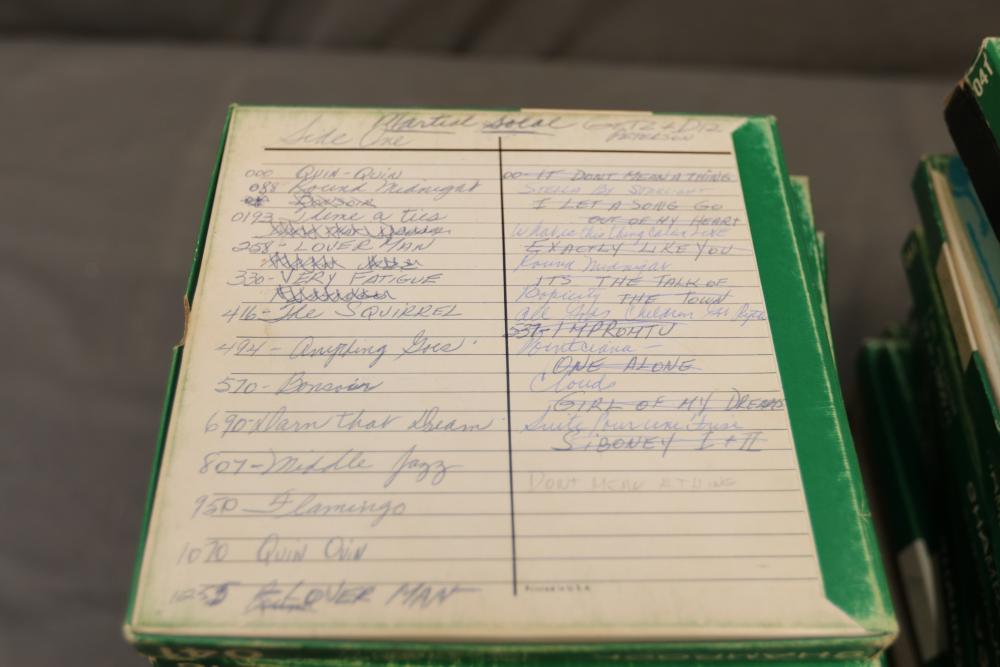 Martial Solal GETZ + DIZ
PETERSON
Side One
000 QUIN-QUIN
088 Round Midnight
BONSOIR
0193 Theme a tics
258- LOVER MAN
330- VERY FATIGUE
416- The SQUIRREL
494 - Anything Goes
570 - Bonsoir
690 Darn that Dream
807 - Middle Jazz
950 - Flamingo
1070 QUIN QUIN
1255 LOVER MAN
00- IT DONT MEAN A THING
STELLA BY STARLIGHT
I LET A SONG GO
OUT OF MY HEART
What is this thing called love
EXACTLY LIKE YOU
Round Midnight
ITS THE TALK OF
THE TOWN
537- IMPROMTU
Pointciana -
ONE ALONE
Clouds
GIRL OF MY DREAMS
Suite Pour une Frise
SIBONEY I + II
DONT MEAN A THING
041